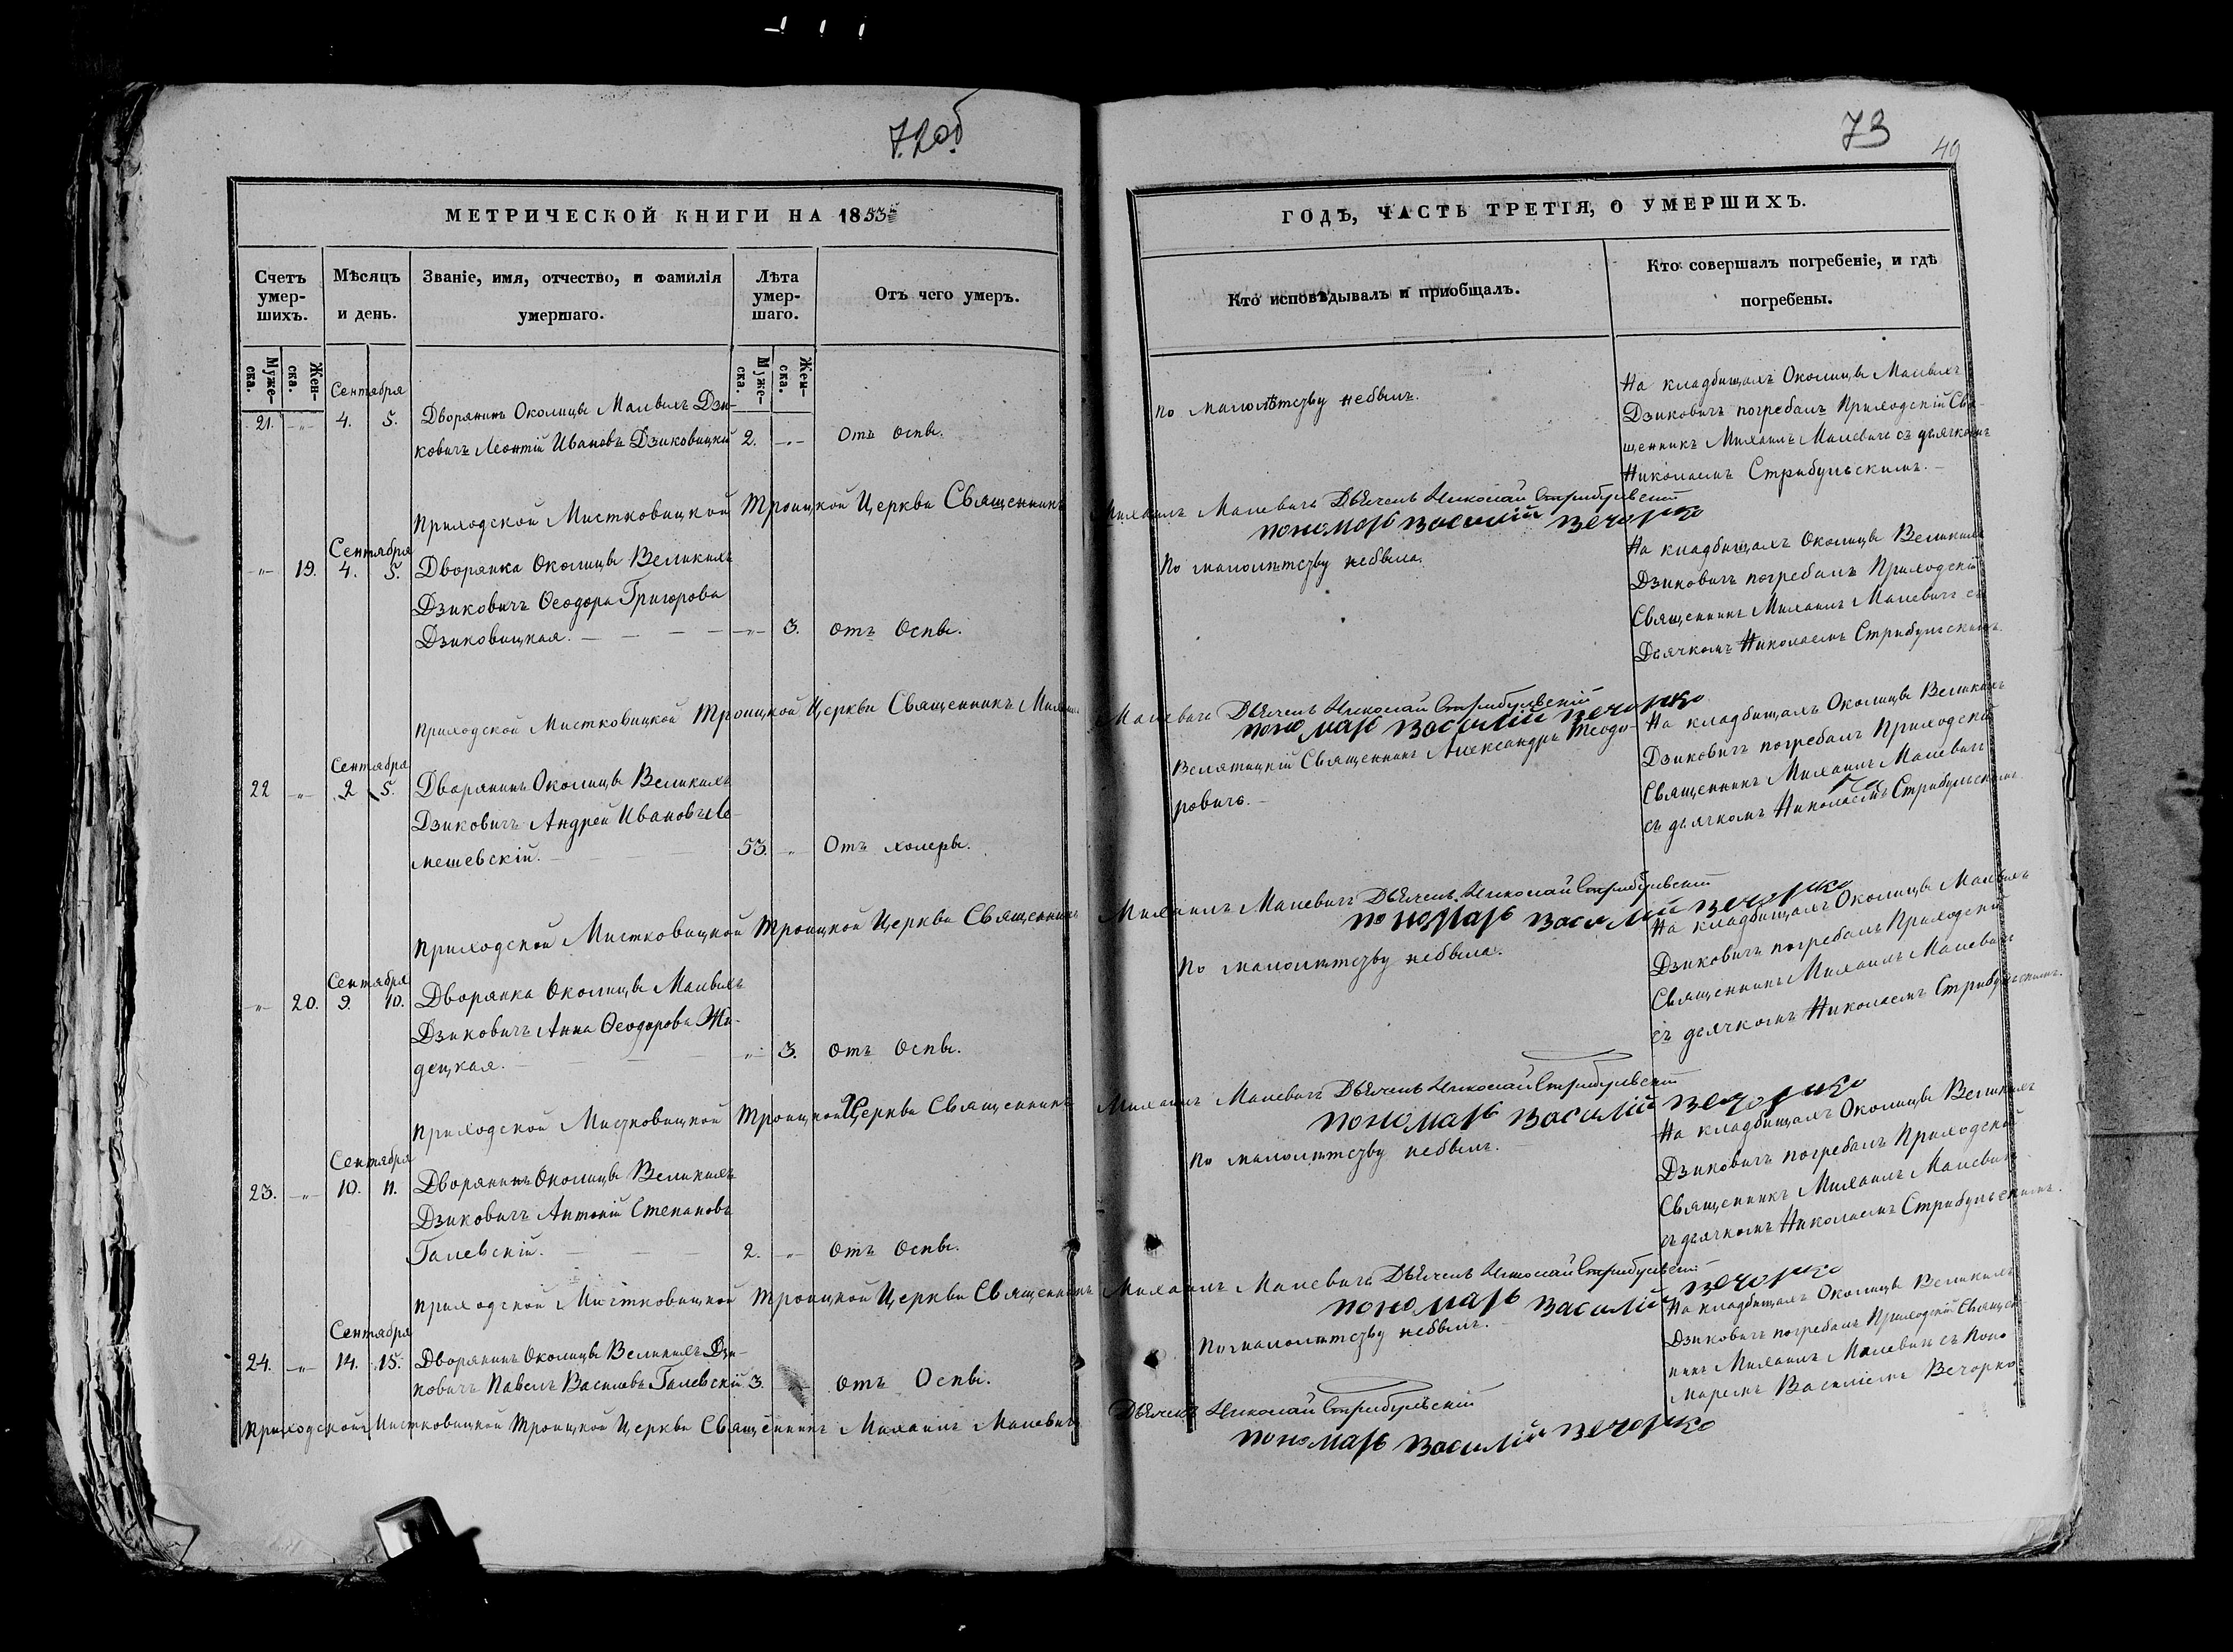 72об
МЕТРИЧЕСКОЙ КНИГИ НА 1853
Счетъ умер-шихъ.
Мѣсяцъ и день.
Званіе, имя, отчество, и фамилія умершаго.
Лѣта умер-шаго.
Отъ чего умеръ.
Муже-ска.
Жен-ска.
Муже-ска.
Жен-ска.
Сентября
21. -„- 4. 5. Дворянинъ Околицы Малыхъ Дзи-
ковичъ Леонтій Ивановъ Дзиковицкій 2. -„- Отъ оспы.
Приходской Мистковицкой Троицкой Церкви Священникъ
Сентября
-„- 19. 4. 5. Дворянка Околицы Великихъ
Дзиковичъ Ѳеодора Григорова
Дзиковицкая. -„- 3. отъ Оспы.
Приходской Мистковицкой Троицкой Церкви Священникъ Михаилъ
Сентября
22 -„- 2 5. Дворянинъ Околицы Великихъ
Дзиковичъ Андрей Ивановъ
мешевскій. 53. „ Отъ холеры.
Приходской Мистковицкой Троицкой Церкви Священникъ
Сентября
-„- 20. 9. 10. Дворянка Околицы Малыхъ
Дзиковичъ Анна Ѳеодорова Жи-
децкая. -„- 3. отъ Оспы.
Приходской Мистковицкой Троицкой Церкви Священникъ
Сентября
23. -„- 10. 11. Дворянинъ Околицы Великихъ
Дзиковичъ Антоній Степановъ
Галевскій. 2. -„- отъ Оспы.
Приходской Мистковицкой Троицкой Церкви Священникъ
Сентября
24. -„- 14. 15. Дворянинъ Околицы Великихъ Дзи-
ковичъ Павелъ Васильевъ Галевскій 3. отъ Оспы.
Приходской Мистковицкой Троицкой Церкви Священникъ Михаилъ Малевичъ
73
49
ГОДЪ, ЧАСТЬ ТРЕТІЯ, О УМЕРШИХЪ.
Кто исповѣдывалъ и пріобщалъ.
Кто совершалъ погребеніе, и гдѣ погребены.
по малолѣтству небылъ.
На кладбищахъ Околицы Малыхъ
Дзиковичъ погребалъ Приходскій Свя-
щенникъ Михаилъ Малевичъ съ дьячкомъ
Николаемъ Стрибульскимъ.
Михаилъ Малевичъ Дьячекъ Николай Стрибульскій
пономарь Василій Вечорко
По малолѣтству небыла.
На кладбищахъ Околицы Великихъ
Дзиковичъ погребалъ Приходскій
Священникъ Михаилъ Малевичъ съ
Дьячкомъ Николаемъ Стрибульскимъ.
Малевичъ Дьячекъ Николай Стрибульскій
пономарь Василій Вечорко
Велятицкій Священникъ Александръ Теодо-
ровичъ.
На кладбищахъ Околицы Великихъ
Дзиковичъ погребалъ Приходскій
Священникъ Михаилъ Малевичъ
съ дьячкомъ Николаемъ Стрибульскимъ.
Михаилъ Малевичъ Дьячекъ Николай Стрибульскій
пономарь Василій Вечорко
По малолѣтству небыла.
На кладбищахъ Околицы Малыхъ
Дзиковичъ погребалъ Приходскій
Священникъ Михаилъ Малевичъ
съ дьячкомъ Николаемъ Стрибульскимъ.
Михаилъ Малевичъ Дьячекъ Николай Стрибульскій
пономарь Василій Вечорко
По малолѣтству небылъ.
На кладбищахъ Околицы Великихъ
Дзиковичъ погребалъ Приходскій
Священникъ Михаилъ Малевичъ
съ дьячкомъ Николаемъ Стрибульскимъ.
Михаилъ Малевичъ Дьячекъ Николай Стрибульскій
пономарь Василій Вечорко
По малолѣтству небылъ.
На кладбищахъ Околицы Великихъ
Дзиковичъ погребалъ Приходскій Священ-
никъ Михаилъ Малевичъ съ Поно-
маремъ Василіемъ Вечорко
Дьячекъ Николай Стрибульскій
пономарь Василій Вечорко